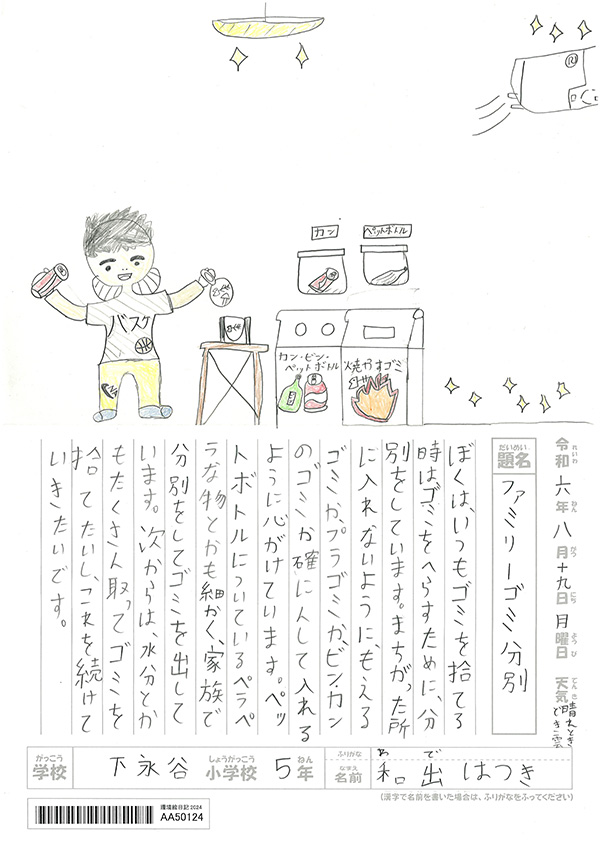 カン
ペットボトル
バスケ
カン・ビン・
ペットボトル
燃やすゴミ
令和六年八月十九日月曜日 天気晴れときどき雲
れいわ ねん がつ にち ようび てんき
だいめい
題名 ファミリーゴミ分別
ぼくは、いつもゴミを捨てる
時は、ゴミをへらすために、分
別をしています。まちがった所
に入れないように、もえる
ゴミか、プラゴミか、ビンカン
のゴミか確にんして入れる
ように心がけています。ペッ
トボトルについているペラペ
ラな物とかも細かく、家族で
分別をしてゴミを出して
います。次からは、水分とか
もたくさん取ってゴミを
捨てたいし、これを続けて
いきたいです。
がっこう しょうがっこう ねん
学校 下永谷 小学校 5年
ふりがな わで
なまえ
名前 和出 はつき
(漢字で名前を書いた場合は、ふりがなをふってください)
環境絵日記2024
AA50124